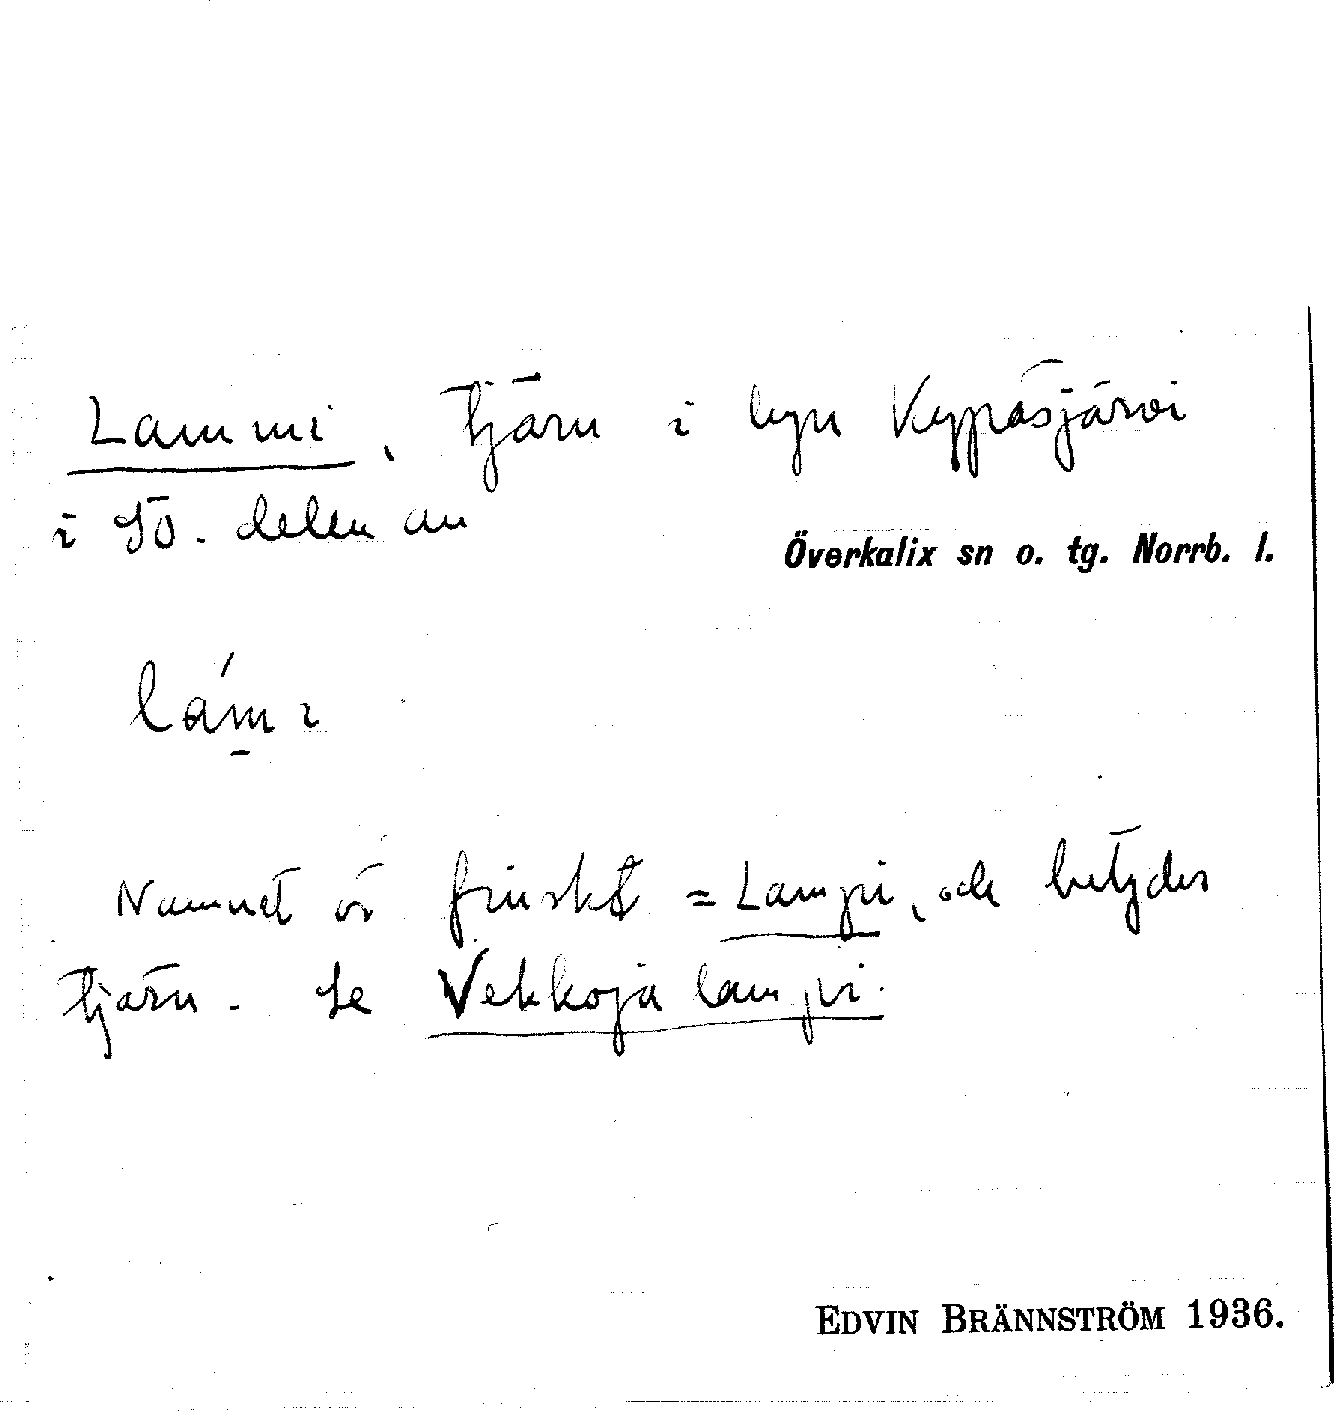 Lammi, tjärn i byn Kypasjärvi
i sö. delen av
Överkalix sn o. tg. Norrb. l.
lámı
Namnet är finskt = Lampi, och betyder
tjärn. Se Vekkoja lampi.
EDVIN BRÄNNSTRÖM 1936.